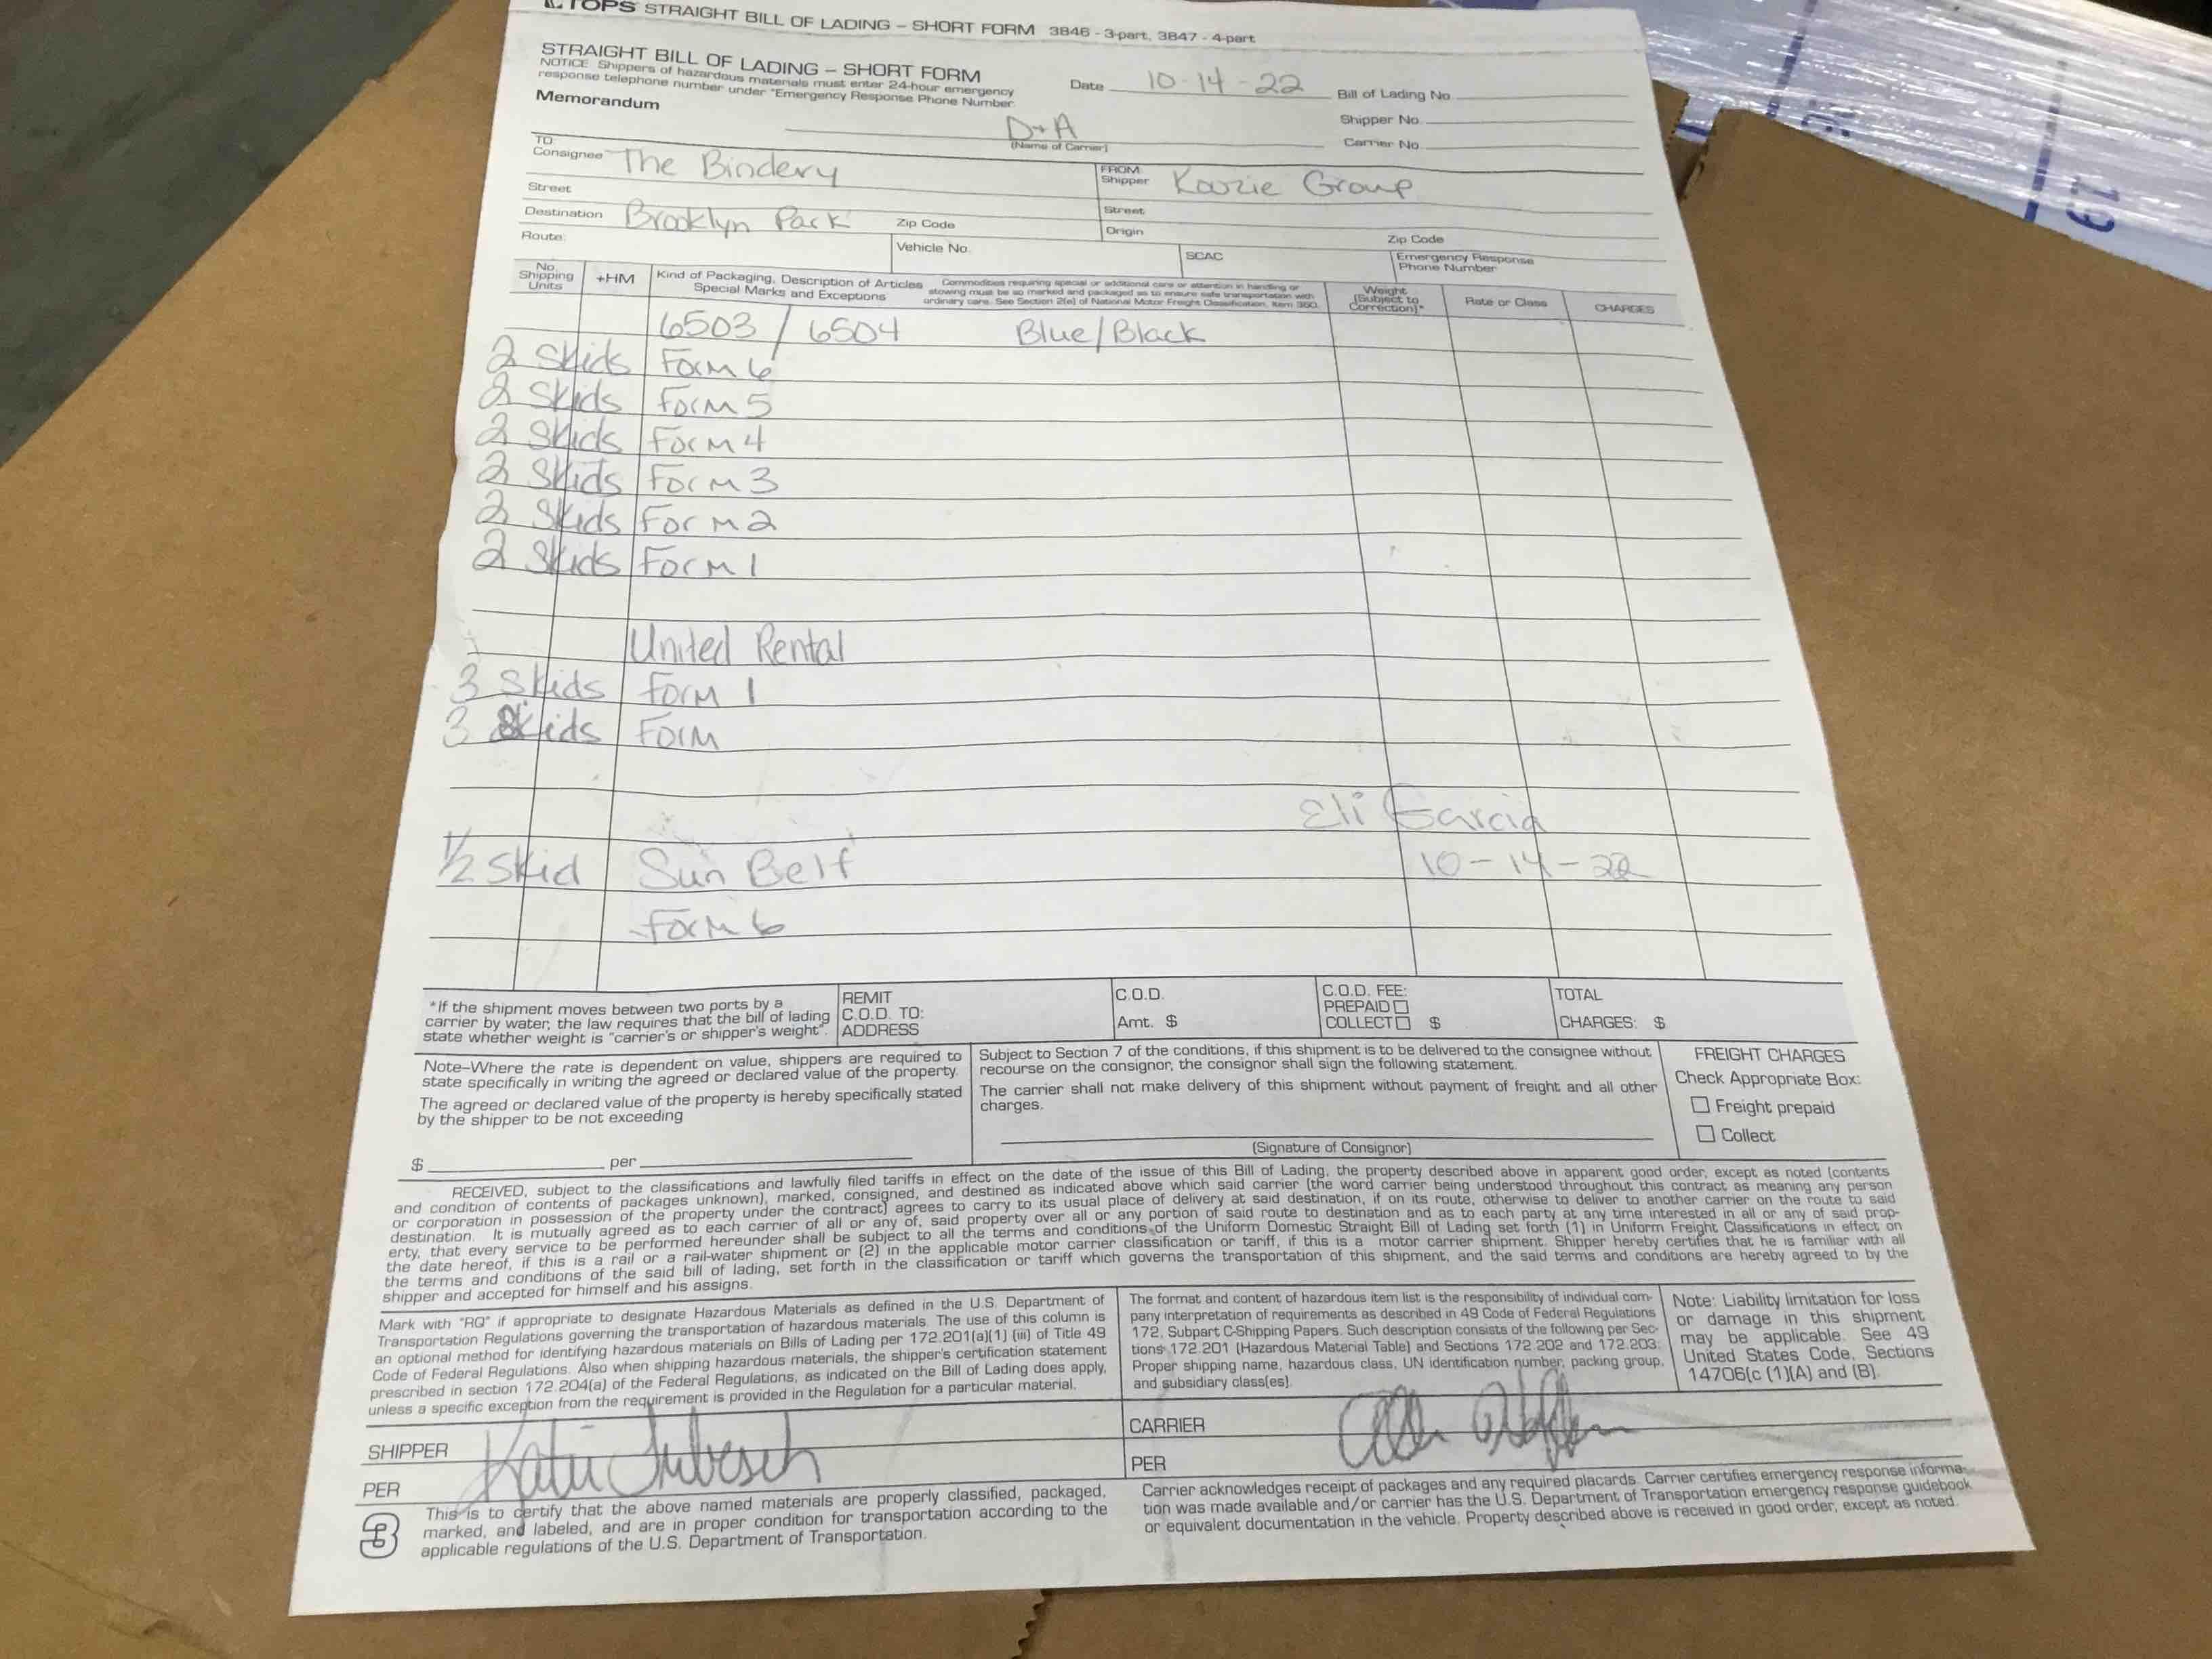 TOPS STRAIGHT BILL OF LADING – SHORT FORM 3846 - 3-part, 3847 - 4-part
STRAIGHT BILL OF LADING – SHORT FORM
NOTICE Shippers of hazardous materials must enter 24-hour emergency
response telephone number under "Emergency Response Phone Number.
Memorandum
Date 10-14-22
Bill of Lading No.
Shipper No.
Carrier No.
D+A
(Name of Carrier)
TO:
Consignee The Bindery
FROM:
Shipper Kouzie Group
Street
Street
Destination Brooklyn Park Zip Code
Origin Zip Code
Route:
Vehicle No.
SCAC
Emergency Response
Phone Number
No.
Shipping
Units
+HM
Kind of Packaging, Description of Articles
Special Marks and Exceptions
Commodities requiring special or additional care or attention in handling or
stowing must be so marked and packaged as to ensure safe transportation with
ordinary care. See Section 2(e) of National Motor Freight Classification, Item 360.
Weight
(Subject to
Correction)*
Rate or Class
CHARGES
6503 / 6504 Blue/Black
2 Skids Form 6
2 Skids Form 5
2 Skids Form 4
2 Skids Form 3
2 Skids Form 2
2 Skids Form 1
United Rental
3 Skids Form 1
3 Skids Form
Eli Garcia
1/2 Skid Sun Belt 10-14-22
Form 6
*If the shipment moves between two ports by a
carrier by water, the law requires that the bill of lading
state whether weight is "carrier's or shipper's weight".
REMIT
C.O.D. TO:
ADDRESS
C.O.D.
Amt. $
C.O.D. FEE:
PREPAID
COLLECT $
TOTAL
CHARGES: $
Note–Where the rate is dependent on value, shippers are required to
state specifically in writing the agreed or declared value of the property.
The agreed or declared value of the property is hereby specifically stated
by the shipper to be not exceeding
$ per
Subject to Section 7 of the conditions, if this shipment is to be delivered to the consignee without
recourse on the consignor, the consignor shall sign the following statement.
The carrier shall not make delivery of this shipment without payment of freight and all other
charges.
(Signature of Consignor)
FREIGHT CHARGES
Check Appropriate Box:
Freight prepaid
Collect
RECEIVED, subject to the classifications and lawfully filed tariffs in effect on the date of the issue of this Bill of Lading, the property described above in apparent good order, except as noted (contents
and condition of contents of packages unknown), marked, consigned, and destined as indicated above which said carrier (the word carrier being understood throughout this contract as meaning any person
or corporation in possession of the property under the contract) agrees to carry to its usual place of delivery at said destination, if on its route, otherwise to deliver to another carrier on the route to said
destination. It is mutually agreed as to each carrier of all or any of, said property over all or any portion of said route to destination and as to each party at any time interested in all or any of said prop-
erty, that every service to be performed hereunder shall be subject to all the terms and conditions of the Uniform Domestic Straight Bill of Lading set forth (1) in Uniform Freight Classifications in effect on
the date hereof, if this is a rail or a rail-water shipment or (2) in the applicable motor carrier classification or tariff, if this is a motor carrier shipment. Shipper hereby certifies that he is familiar with all
the terms and conditions of the said bill of lading, set forth in the classification or tariff which governs the transportation of this shipment, and the said terms and conditions are hereby agreed to by the
shipper and accepted for himself and his assigns.
Mark with "RQ" if appropriate to designate Hazardous Materials as defined in the U.S. Department of
Transportation Regulations governing the transportation of hazardous materials. The use of this column is
an optional method for identifying hazardous materials on Bills of Lading per 172.201(a)(1) (iii) of Title 49
Code of Federal Regulations. Also when shipping hazardous materials, the shipper's certification statement
prescribed in section 172.204(a) of the Federal Regulations, as indicated on the Bill of Lading does apply,
unless a specific exception from the requirement is provided in the Regulation for a particular material.
The format and content of hazardous item list is the responsibility of individual com-
pany interpretation of requirements as described in 49 Code of Federal Regulations
172, Subpart C-Shipping Papers. Such description consists of the following per Sec-
tions 172.201 (Hazardous Material Table) and Sections 172.202 and 172.203:
Proper shipping name, hazardous class, UN identification number, packing group,
and subsidiary class(es).
Note: Liability limitation for loss
or damage in this shipment
may be applicable. See 49
United States Code, Sections
14706(c (1)(A) and (B).
SHIPPER
PER Katie
CARRIER
PER
3
This is to certify that the above named materials are properly classified, packaged,
marked, and labeled, and are in proper condition for transportation according to the
applicable regulations of the U.S. Department of Transportation.
Carrier acknowledges receipt of packages and any required placards. Carrier certifies emergency response informa-
tion was made available and/or carrier has the U.S. Department of Transportation emergency response guidebook
or equivalent documentation in the vehicle. Property described above is received in good order, except as noted.